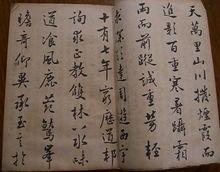 天萬里山川撥煙霞而
進影百重寒暑躡霜
雨而前蹤誠重勞輕
求深願達周遊西宇
十有七年窮歷道邦
詢求正教雙林八水味
道飡風鹿菀鷲峯
瞻奇仰異承至言於